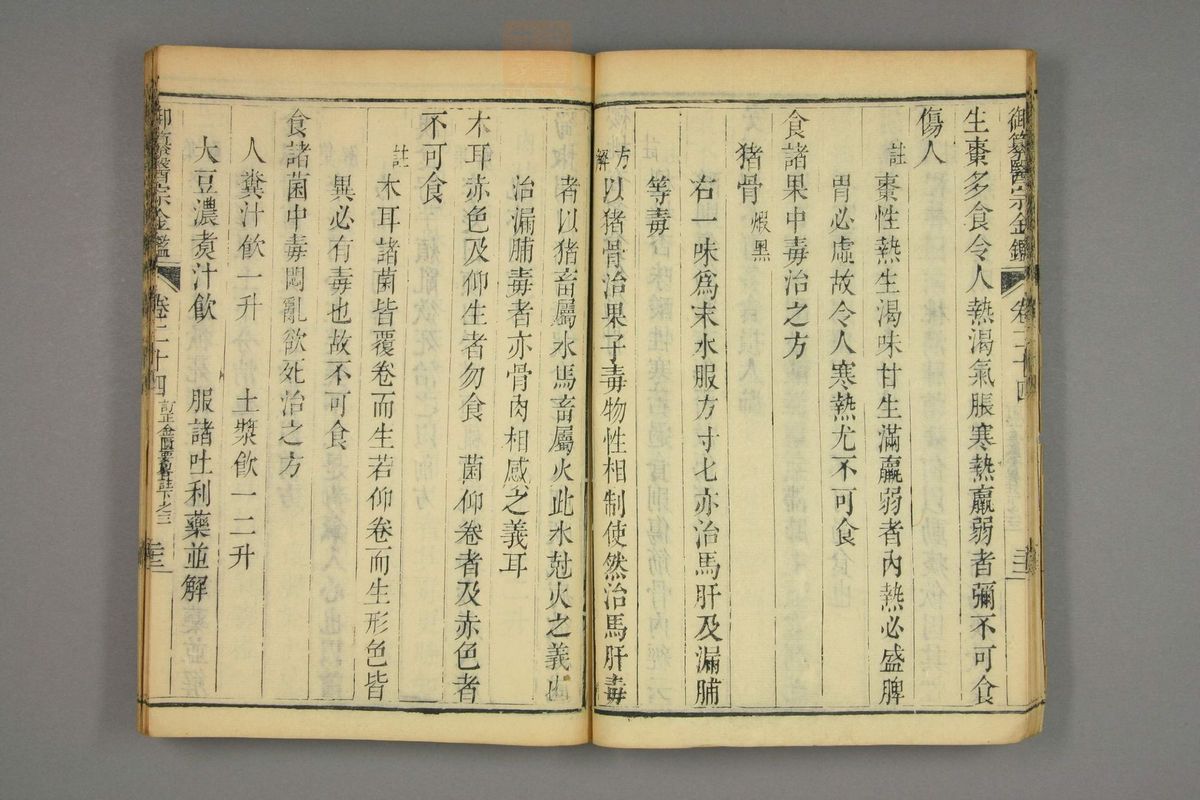 御纂醫宗金鑑 卷二十四
生棗多食令人熱渴氣脹寒熱羸弱者彌不可食
傷人
註 棗性熱生渴味甘生滿羸弱者內熱必盛脾
胃必虛故令人寒熱尤不可食
食諸果中毒治之方
猪骨 煆黑
右一味爲末水服方寸匕亦治馬肝及漏脯
等毒
方解 以猪骨治果子毒物性相制使然治馬肝毒
者以猪畜屬水馬畜屬火此水尅火之義也
治漏脯毒者亦骨肉相感之義耳
木耳赤色及仰生者勿食 菌仰卷者及赤色者
不可食
註 木耳諸菌皆覆卷而生若仰卷而生形色皆
異必有毒也故不可食
食諸菌中毒悶亂欲死治之方
人糞汁飲一升 土漿飲一二升
大豆濃煑汁飲 服諸吐利藥並解
御纂醫宗金鑑 卷二十四 訂正金匱要畧註下之三